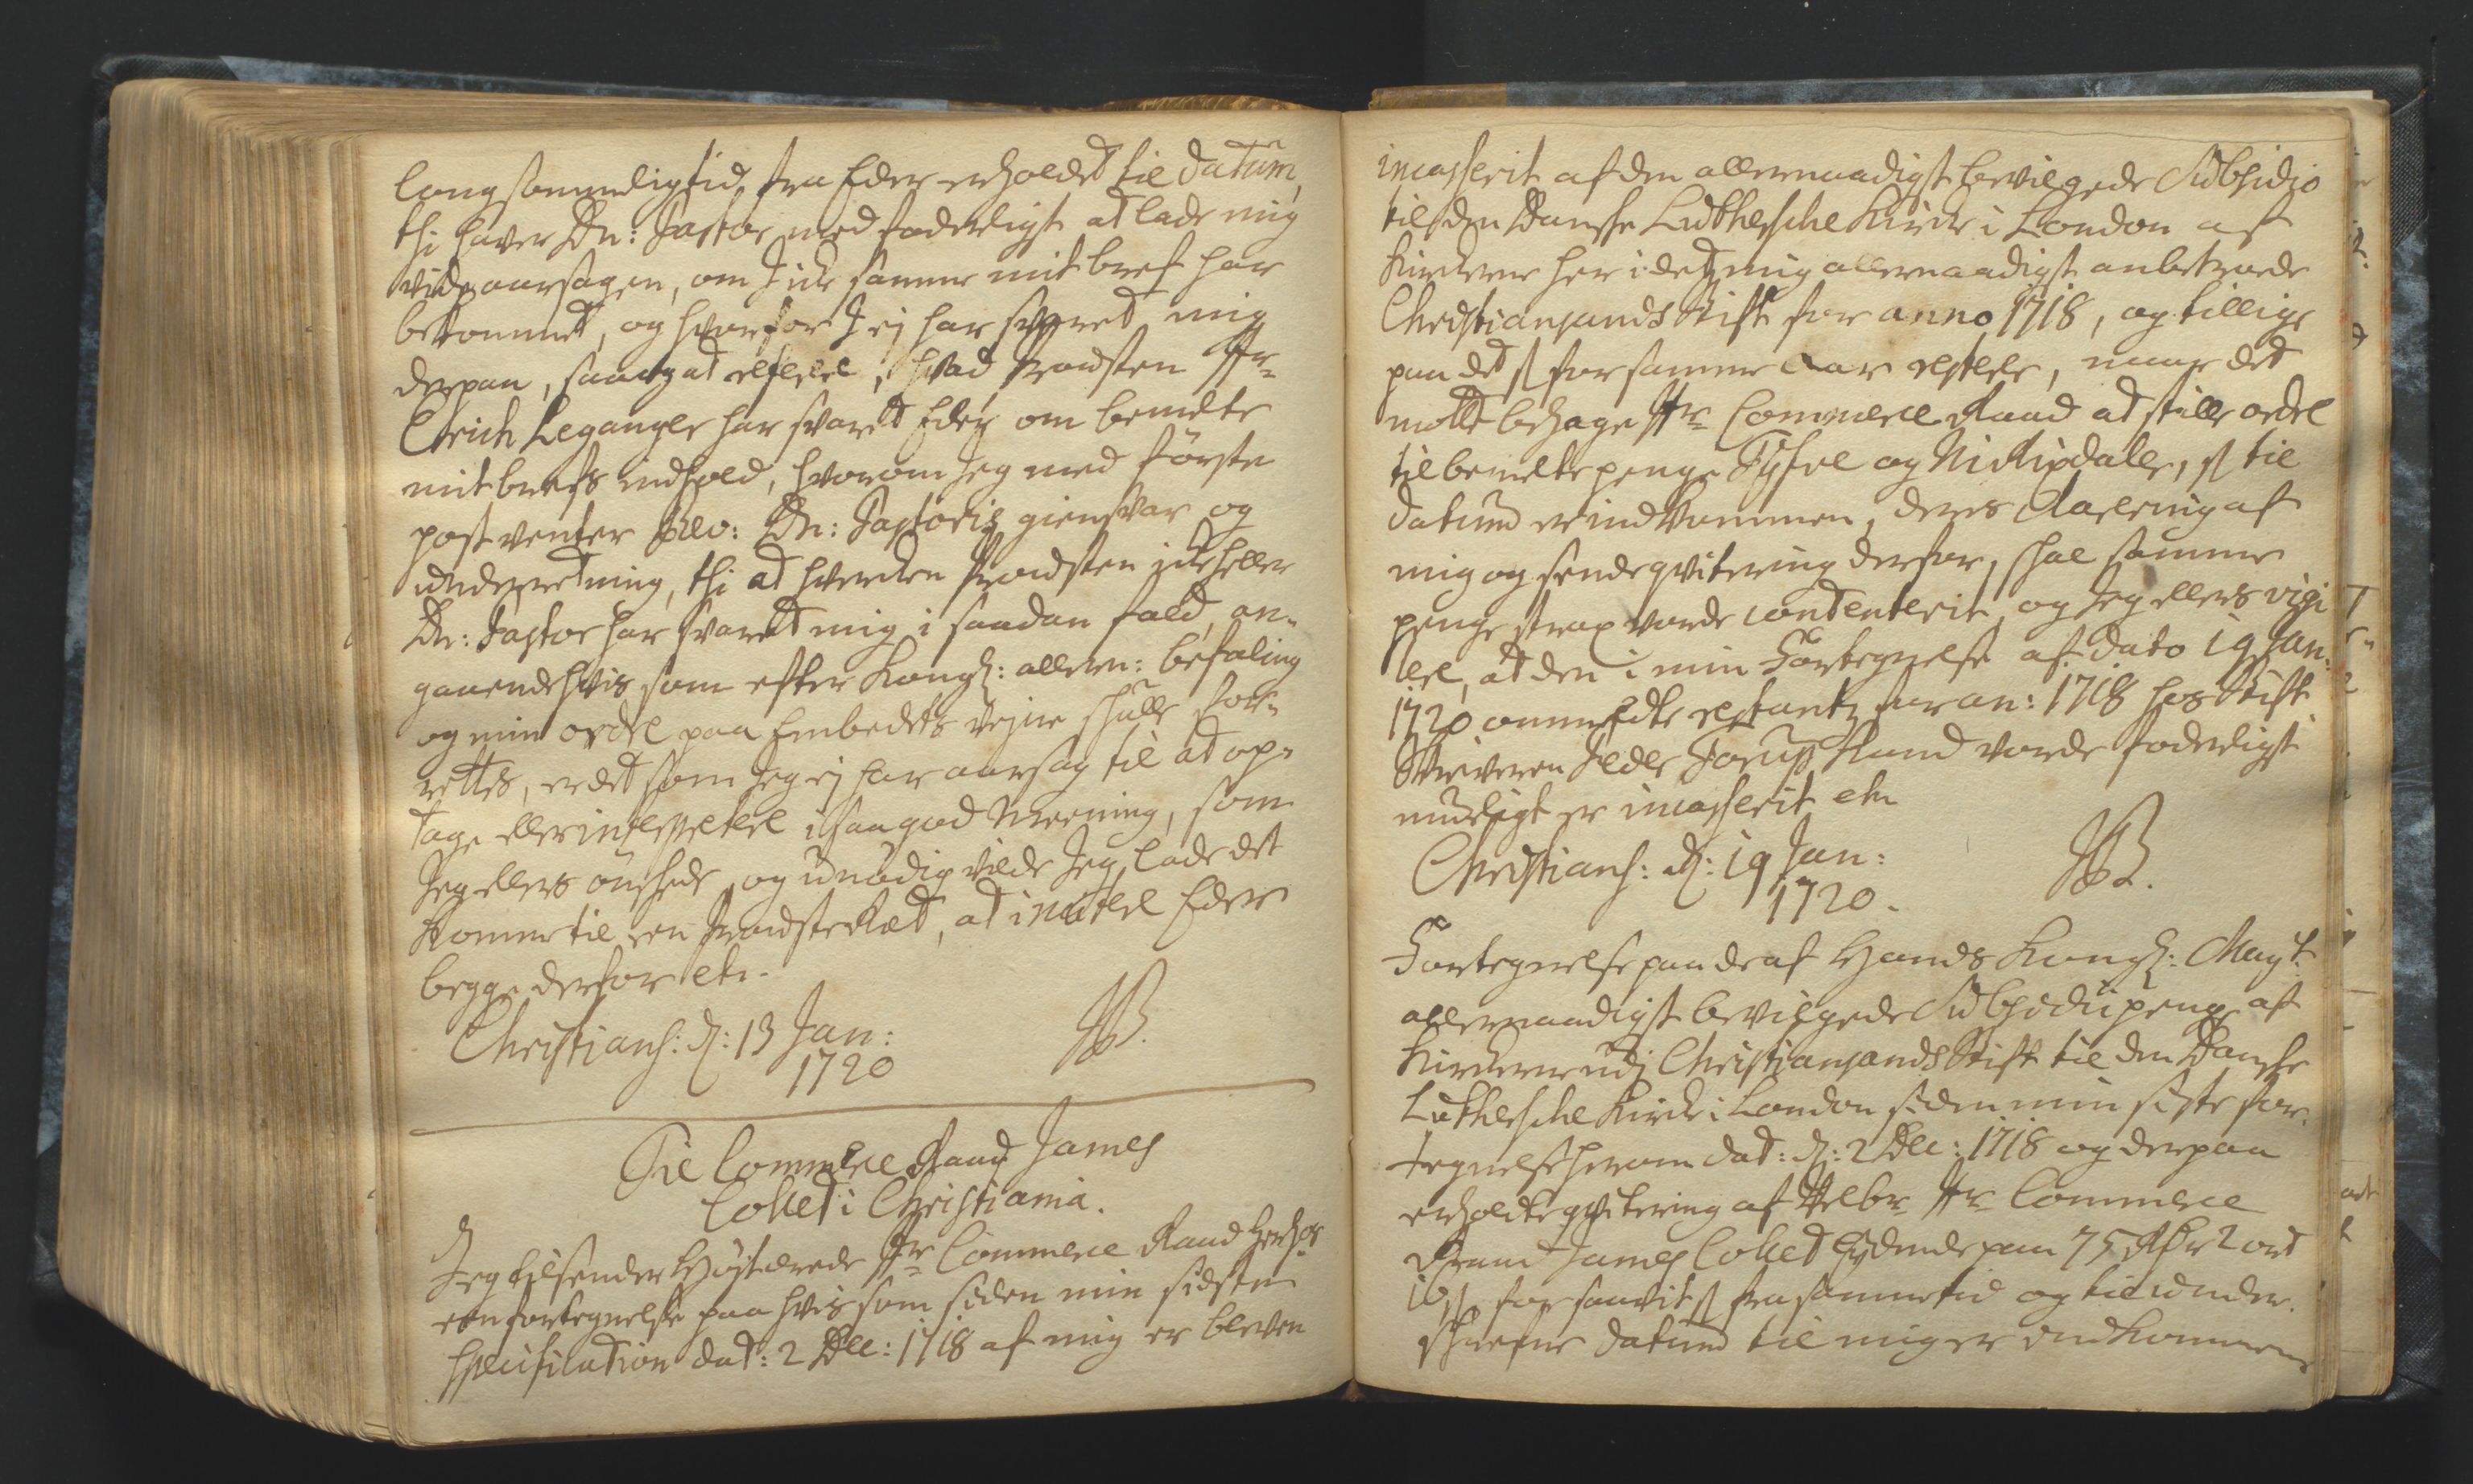 langsommeligtid, fra Eder erholdet til datum,
thi haver Dn: Pastor med foderligst at lade mig
vide aarsagen, om I icke samme mit bref har
bekommet, og hvorfor I ej har svaret mig
derpaa, saa og at referere, hvad Prousten Hr
Chrich Leganger har svaret Eder om bemelte
mit brefs indhold, hvorom Jeg med förste
post venter Rev: Dn: Pastoris giensvar og
underretning, thi at hverken Prousten icke heller
Dn: Pastor har svaret mig i saadan fald, an-
gaaende hvis som efter Kongl: allern: befaling
og min ordre paa Embedets vegne skulle for-
rettes, er det som Jeg ej har aarsag til at op-
tage eller interpretere i saa god Meening, som
Jeg ellers önskede, og unödig vilde Jeg lade det
komme til en Prouste Ræt, at mulctere Eder
begge derfor etc.
Christians: d: 13 Jan:
1720
JB.
Til Commerce Raad James
Collet i Christiania.
Jeg tilsender Höystærede Hr Commerce Raad herhos
een fortegnelse paa hvis som siden min sidste
specification dat: 2 Dec: 1718 af mig er bleven
incasserit af den allernaadigst bevilgede Subsidio
til den Danske Lutherske Kirke i London af
Kirkerne her i det mig allernaadigst anbetroede
Christiansands Stift for anno 1718, og tillige
paa det for samme Aar resterer, maae det
motte behage Hr Commerce Raad at stille ordre
til bemelte penge Tysve og Ni Rixdaler, til
datum er indkommen, deres Levering af
mig og sende qvitering derfor, skal samme
penge strax vorde contenterit, og Jeg ellers vigi
lere, at den i min Fortegnelse af dato 19 Jan:
1720 ommelte restantz for an: 1718 hos Stift
Skriveren Peder Torup kand vorde foderligst
mueligt er incasserit etc
Christians: d: 19 Jan:
1720.
JB.
Fortegnelse paa de af Hands Kongl: Mayt:
allernaadigst bevilgede Subsidii penge af
Kirkerne udi Christiansands Stift til den Danske
Lutherske Kirke i London siden min siste for-
tegnelse herom dat: d: 2 Dec: 1718 og derpaa
erholdte qvitering af Velbr Hr Commerce
Raad James Collet lydende paa 75 Rdr 2 ort
16 s for saavit fra samme tid og til under-
skrefne datum til mig er indkommen